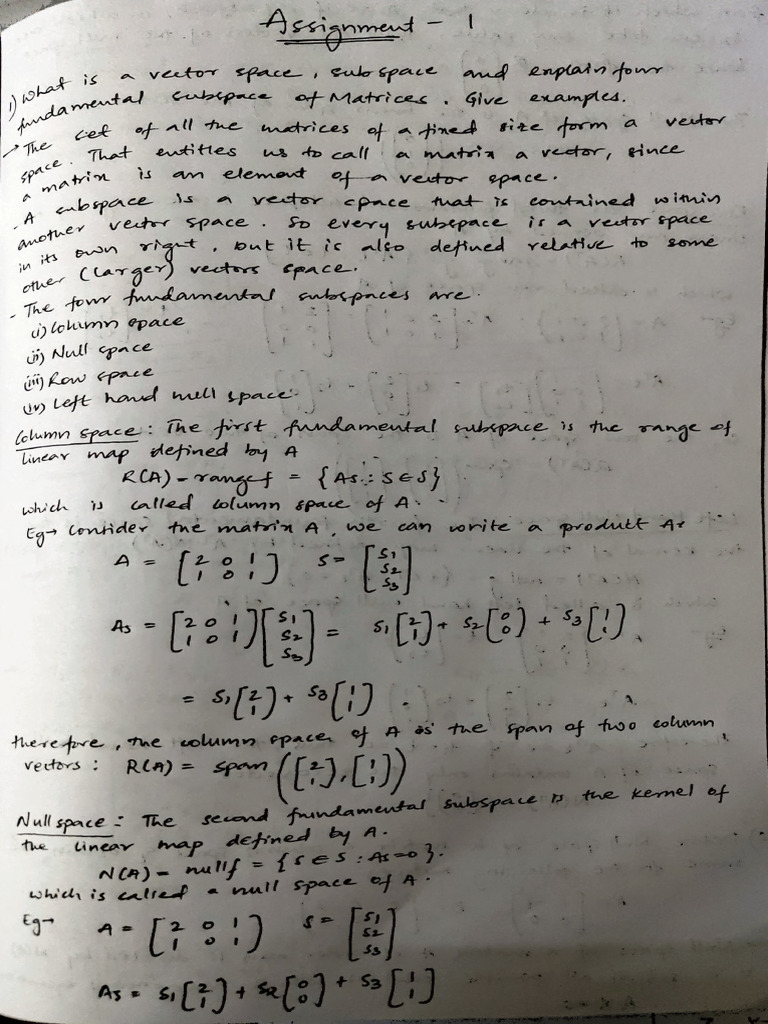 Assignment - 1
1) What is a vector space, subspace and explain four
fundamental subspace of Matrices. Give examples.
→ The set of all the matrices of a fixed size form a vector
space. That entitles us to call a matrix a vector, since
a matrix is an element of a vector space.
- A subspace is a vector space that is contained within
another vector space. So every subspace is a vector space
in its own right, but it is also defined relative to some
other (larger) vectors space.
- The four fundamental subspaces are.
i) Column space
ii) Null space
iii) Row space
iv) Left hand null space.
Column space: The first fundamental subspace is the range of
linear map defined by A
R(A) - rangef = {As : S ∈ S}
which is called column space of A.
Eg → Consider the matrix A, we can write a product As
A = [2 0 1; 1 0 1] S = [S1; S2; S3]
As = [2 0 1; 1 0 1] [S1; S2; S3] = S1 [2; 1] + S2 [0; 0] + S3 [1; 1]
= S1 [2; 1] + S3 [1; 1]
therefore, the column space of A is the span of two column
vectors: R(A) = span ([2; 1], [1; 1])
Null space: The second fundamental subspace is the kernel of
the linear map defined by A.
N(A) - nullf = {S ∈ S : As = 0}.
which is called a null space of A.
Eg → A = [2 0 1; 1 0 1] S = [S1; S2; S3]
As = S1 [2; 1] + S2 [0; 0] + S3 [1; 1]